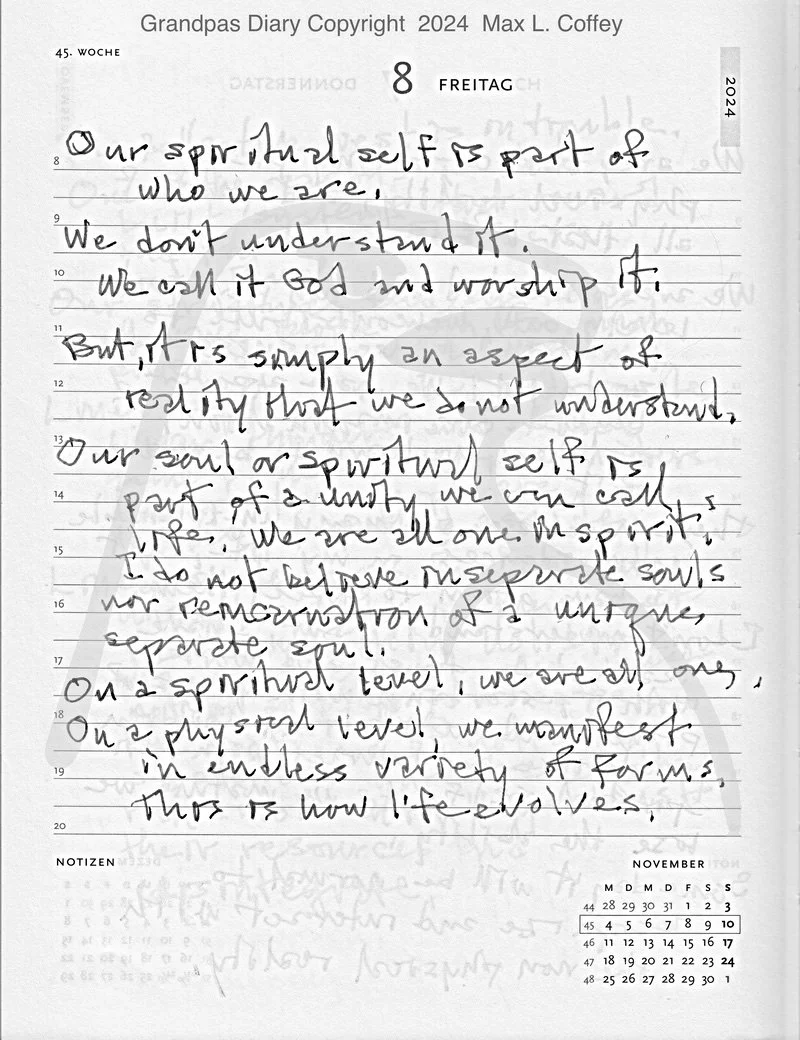 Grandpas Diary Copyright 2024 Max L. Coffey
45. WOCHE
8 FREITAG
2024
8 Our spiritual self is part of
who we are.
9 We don't understand it.
10 We call it God and worship it.
11 But, it is simply an aspect of
12 reality that we do not understand.
13 Our soul or spiritual self is
14 part of a unity we can call
life. We are all one in spirit.
15 I do not believe in seperate souls
16 nor reincarnation of a unique,
separate soul.
17 On a spiritual level, we are all one,
18 On a physical level, we manifest
19 in endless variety of forms.
This is how life evolves.
20
NOTIZEN
NOVEMBER
M D M D F S S
44 28 29 30 31 1 2 3
45 4 5 6 7 8 9 10
46 11 12 13 14 15 16 17
47 18 19 20 21 22 23 24
48 25 26 27 28 29 30 1